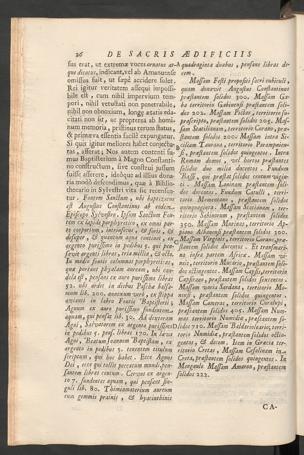 26 DE SACRIS ÆDIFICIIS
sus erat, ut extremæ voces ornatus at-
que dicatus, indicant, vel ab Amanuense
omissus fuit, ut sæpè accidere solet.
Rei igitur veritatem assequi impossi-
bile est, cum nihil impervium tem-
pori, nihil vetustati non penetrabile,
nihil non obnoxium, longæ ætatis edacitati
non sit, ac propterea ab homi-
num memoria, pristinus rerum status,
& primæva essentia facilè expungatur.
Si quis igitur meliores habet conjectu-
ras, afferat; Nos autem contenti su-
mus Baptisterium à Magno Constanti-
no constructum, sivè construi jussum
fuisse asserere, idóque ad illius
modò defendimus, quæ à Biblio-
thecario in Sylvestri vita sic recensen-
tur. Fontem Sanctum, ubi baptizatus
est Augustus Constantinus ab eodem
Episcopo Sylvestro. Ipsum Sanctum Fon-
tem ex lapide porphyretico, ex omni par-
te coopertum, intrinsecus, & foris, &
desuper, & quantum aqua continet, ex
argento purissimo in pedibus 5. qui pen-
savit argenti libras, tria millia, & octo.
In medio fontis columnas porphyreticas,
quæ portant phyalam auream, ubi can-
dela est, pensans ex auro purissimo libras
52. ubi ardet in diebus Paschæ balsa-
mum lib. 200. nixum verò, ex stippa
amianti in labro Fontis Baptisterii;
Agnum ex auro purissimo fundentem
aquam, qui pensat lib. 30. Ad dexteram
Agni, Salvatorem ex argento purissimo
in pedibus 5. pens. libras 170. In læva
Agni, Beatum Joannem Baptistam, ex
argento in pedibus 5. tenentem titulum
scriptum, qui hoc habet. Ecce Agnus
Dei, ecce qui tollit peccatum mundi, pen-
santem libras centum. Cervos ex argen-
to 7. fundentes aquam, qui pensant sin-
guli lib. 80. Thimiamaterium aureum
cum gemmis prasinis, & hyacinthinis
quadraginta duobus, pensans libras de-
cem.
Massam Festi prepositi sacri cubiculi,
quam donavit Augustus Constantinus
præstantem solidos 300. Massam Ga-
ba territorio Gabinensi præstantem soli-
dos 202. Massam Pictas, territorio su-
prascripto, præstantem solidos 205. Mas-
sam Statilianam, territorio Corano, præ-
stantem solidos 300. Massam intra Si-
ciliam Taurana, territorio Paramnien-
se, præstantem solidos quingentos. Intra
Romam domus, vel hortos præstantes
solidos duo millia docentos. Fundum
Bassi, qui præstat solidos centum vigin-
ti. Massam Laninam præstantem soli-
dos docentos. Fundum Caculis, terri-
torio Momentano, præstantem solidos
quinquaginta. Massam Statianam, ter-
ritorio Sabinensi, præstantem solidos
350. Massam Murinas, territorio Ap-
piano Albanensi præstantem solidos 300.
Massam Virginis, territorio Corano, præ-
stantem solidos ducentos. Et transmari-
na infra partem Africæ. Massam
territorio Muccario, præstantem soli-
dos octingentos. Massam Capsis, territorio
Capsitano, præstantem solidos sexcentos.
Massam varia Sardana, territorio Mi-
mensi, præstantem solidos quingentos.
Massam Cameras, territorio Curalupi,
præstantem solidos 405. Massam Nu-
mas, territorio Numidiæ, præstantem so-
lidos 720. Massam Baldarioletaria, terri-
torio Numidiæ, præstantem solidos octin-
gentos, & decem. Item in Græcia ter-
ritorio Cretas, Massam Cefalinem in
Creta, præstantem solidos quingentos. In
Mengaulo Massam Amazon, præstantem
solidos 222.
CA-